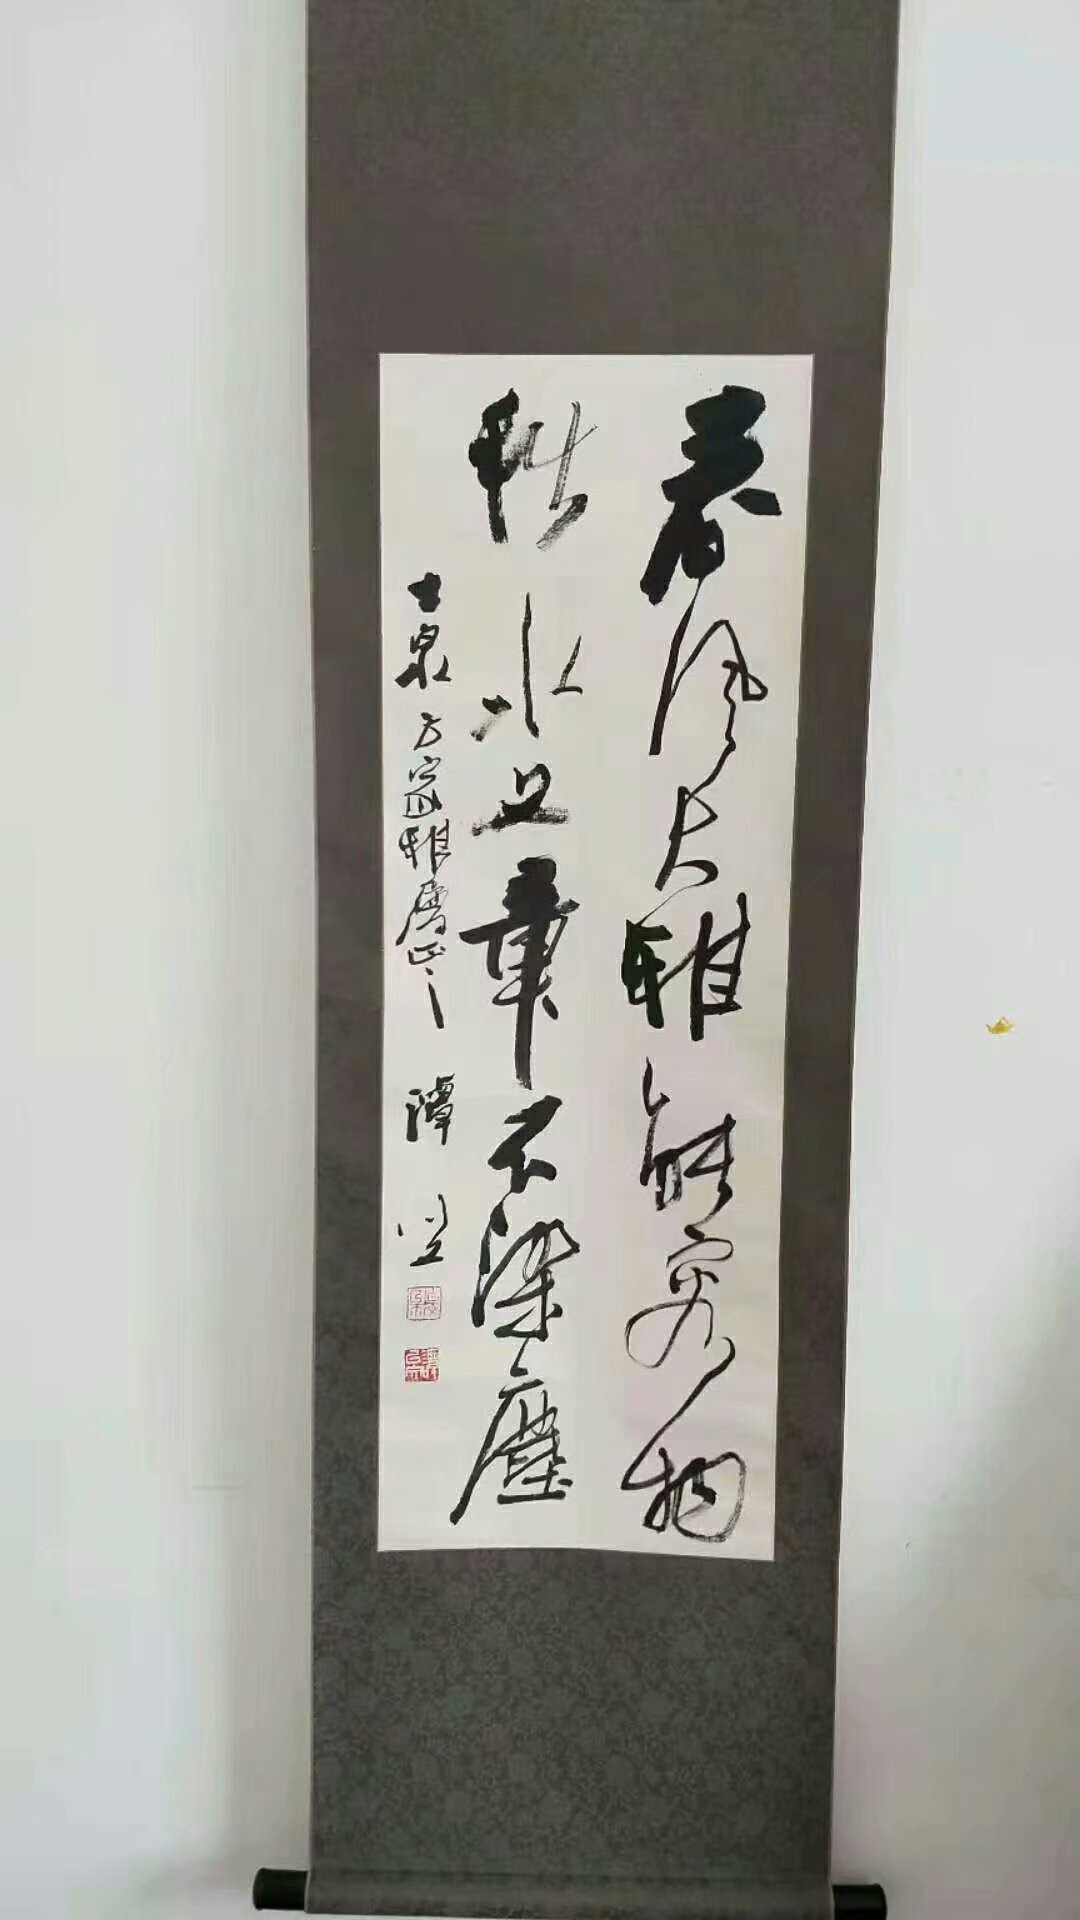 春风大雅能容物
秋水文章不染尘
士泉方家雅属正之